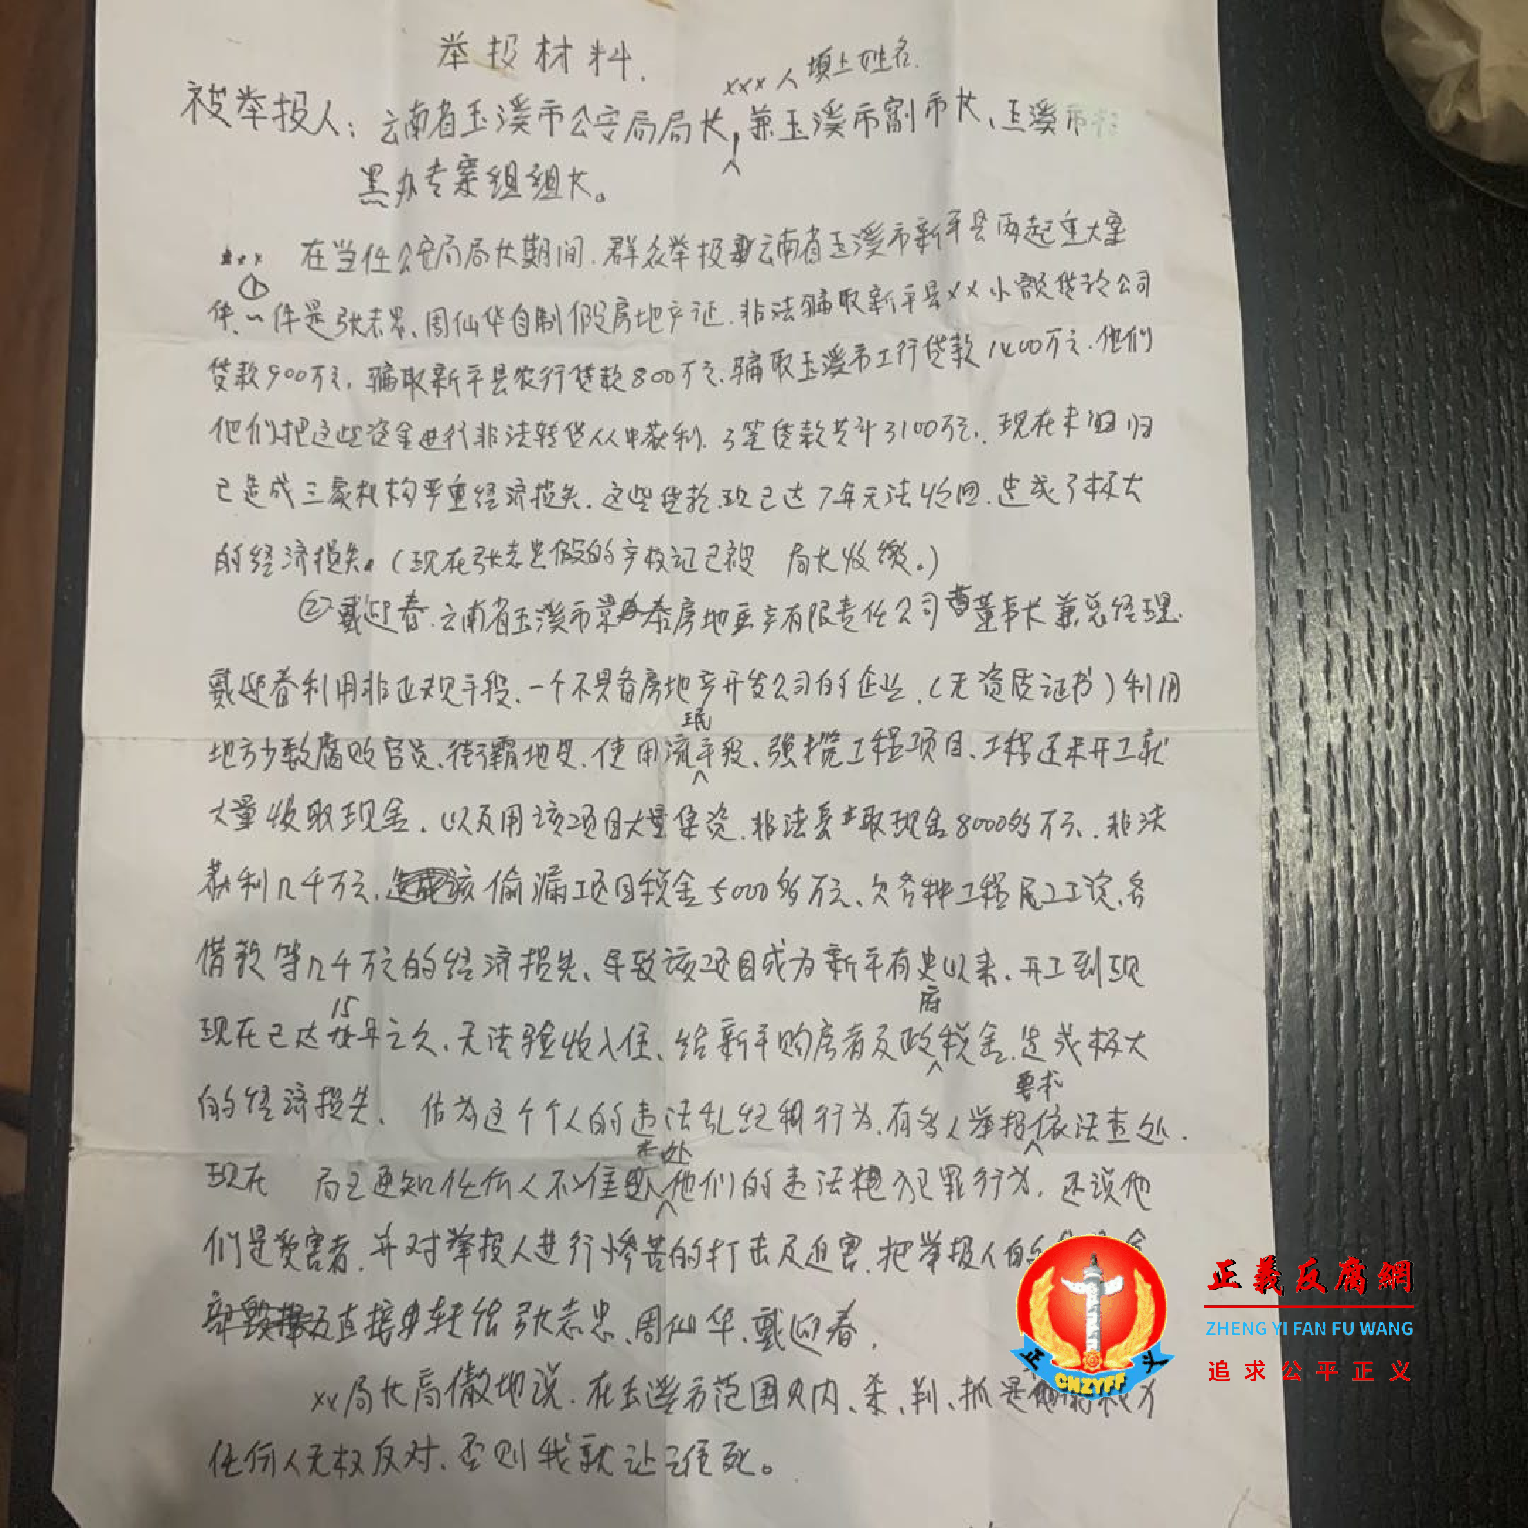 举报材料.
xxx人填上姓名.
被举报人:云南省玉溪市公安局局长,兼玉溪市副市长、玉溪市
黑办专案组组长。
xxx 在当任公安局局长期间.群众举报云南省玉溪市新平县两起重大案
件.①一件是张志忠、周仙华自制假房地产证.非法骗取新平县xx小额贷款公司
贷款900万元,骗取新平县农行贷款800万元.骗取玉溪市工行贷款1400万元.他们
他们把这些资金进行非法转贷从中获利.3笔贷款共计3100万元.现在未归归
已造成三家机构严重经济损失.这些贷款现已达7年无法收回.造成了极大
的经济损失。(现在张志忠假的产权证已被 局长收缴。)
②戴迎春.云南省玉溪市 泰房地产有限责任公司董事长兼总经理.
戴迎春利用非正规手段、一个不具备房地产开发公司的企业.(无资质证书)利用
地方少数腐败官员、街霸地皮.使用流氓手段、强揽工程项目、工程还未开工就
大量收取现金、以及用该项目大量集资.非法 取现金8000多万元、非法
获利几千万元.该偷漏项目税金5000多万元、欠各种工程民工工资、各
借款等几千万元的经济损失、导致该项目成为新平有史以来、开工到现
现在已达15年之久.无法验收入住、给新平购房者及政府税金.造成极大
的经济损失. 估为这个个人的违法乱纪 行为.有多人举报要求依法查处.
现在 局已通知任何人不准 查处他们的违法 犯罪行为.还说他
们是受害者.并对举报人进行惨苦的打击及迫害.把举报人的
部 直接 转给张志忠、周仙华、戴迎春.
xx局长局傲地说.在玉溪市范围 内、杀、判、抓是
任何人无权反对、否则我就让谁死。
正義反腐網
ZHENG YI FAN FU WANG
追求公平正义
正 义
CNZYFF